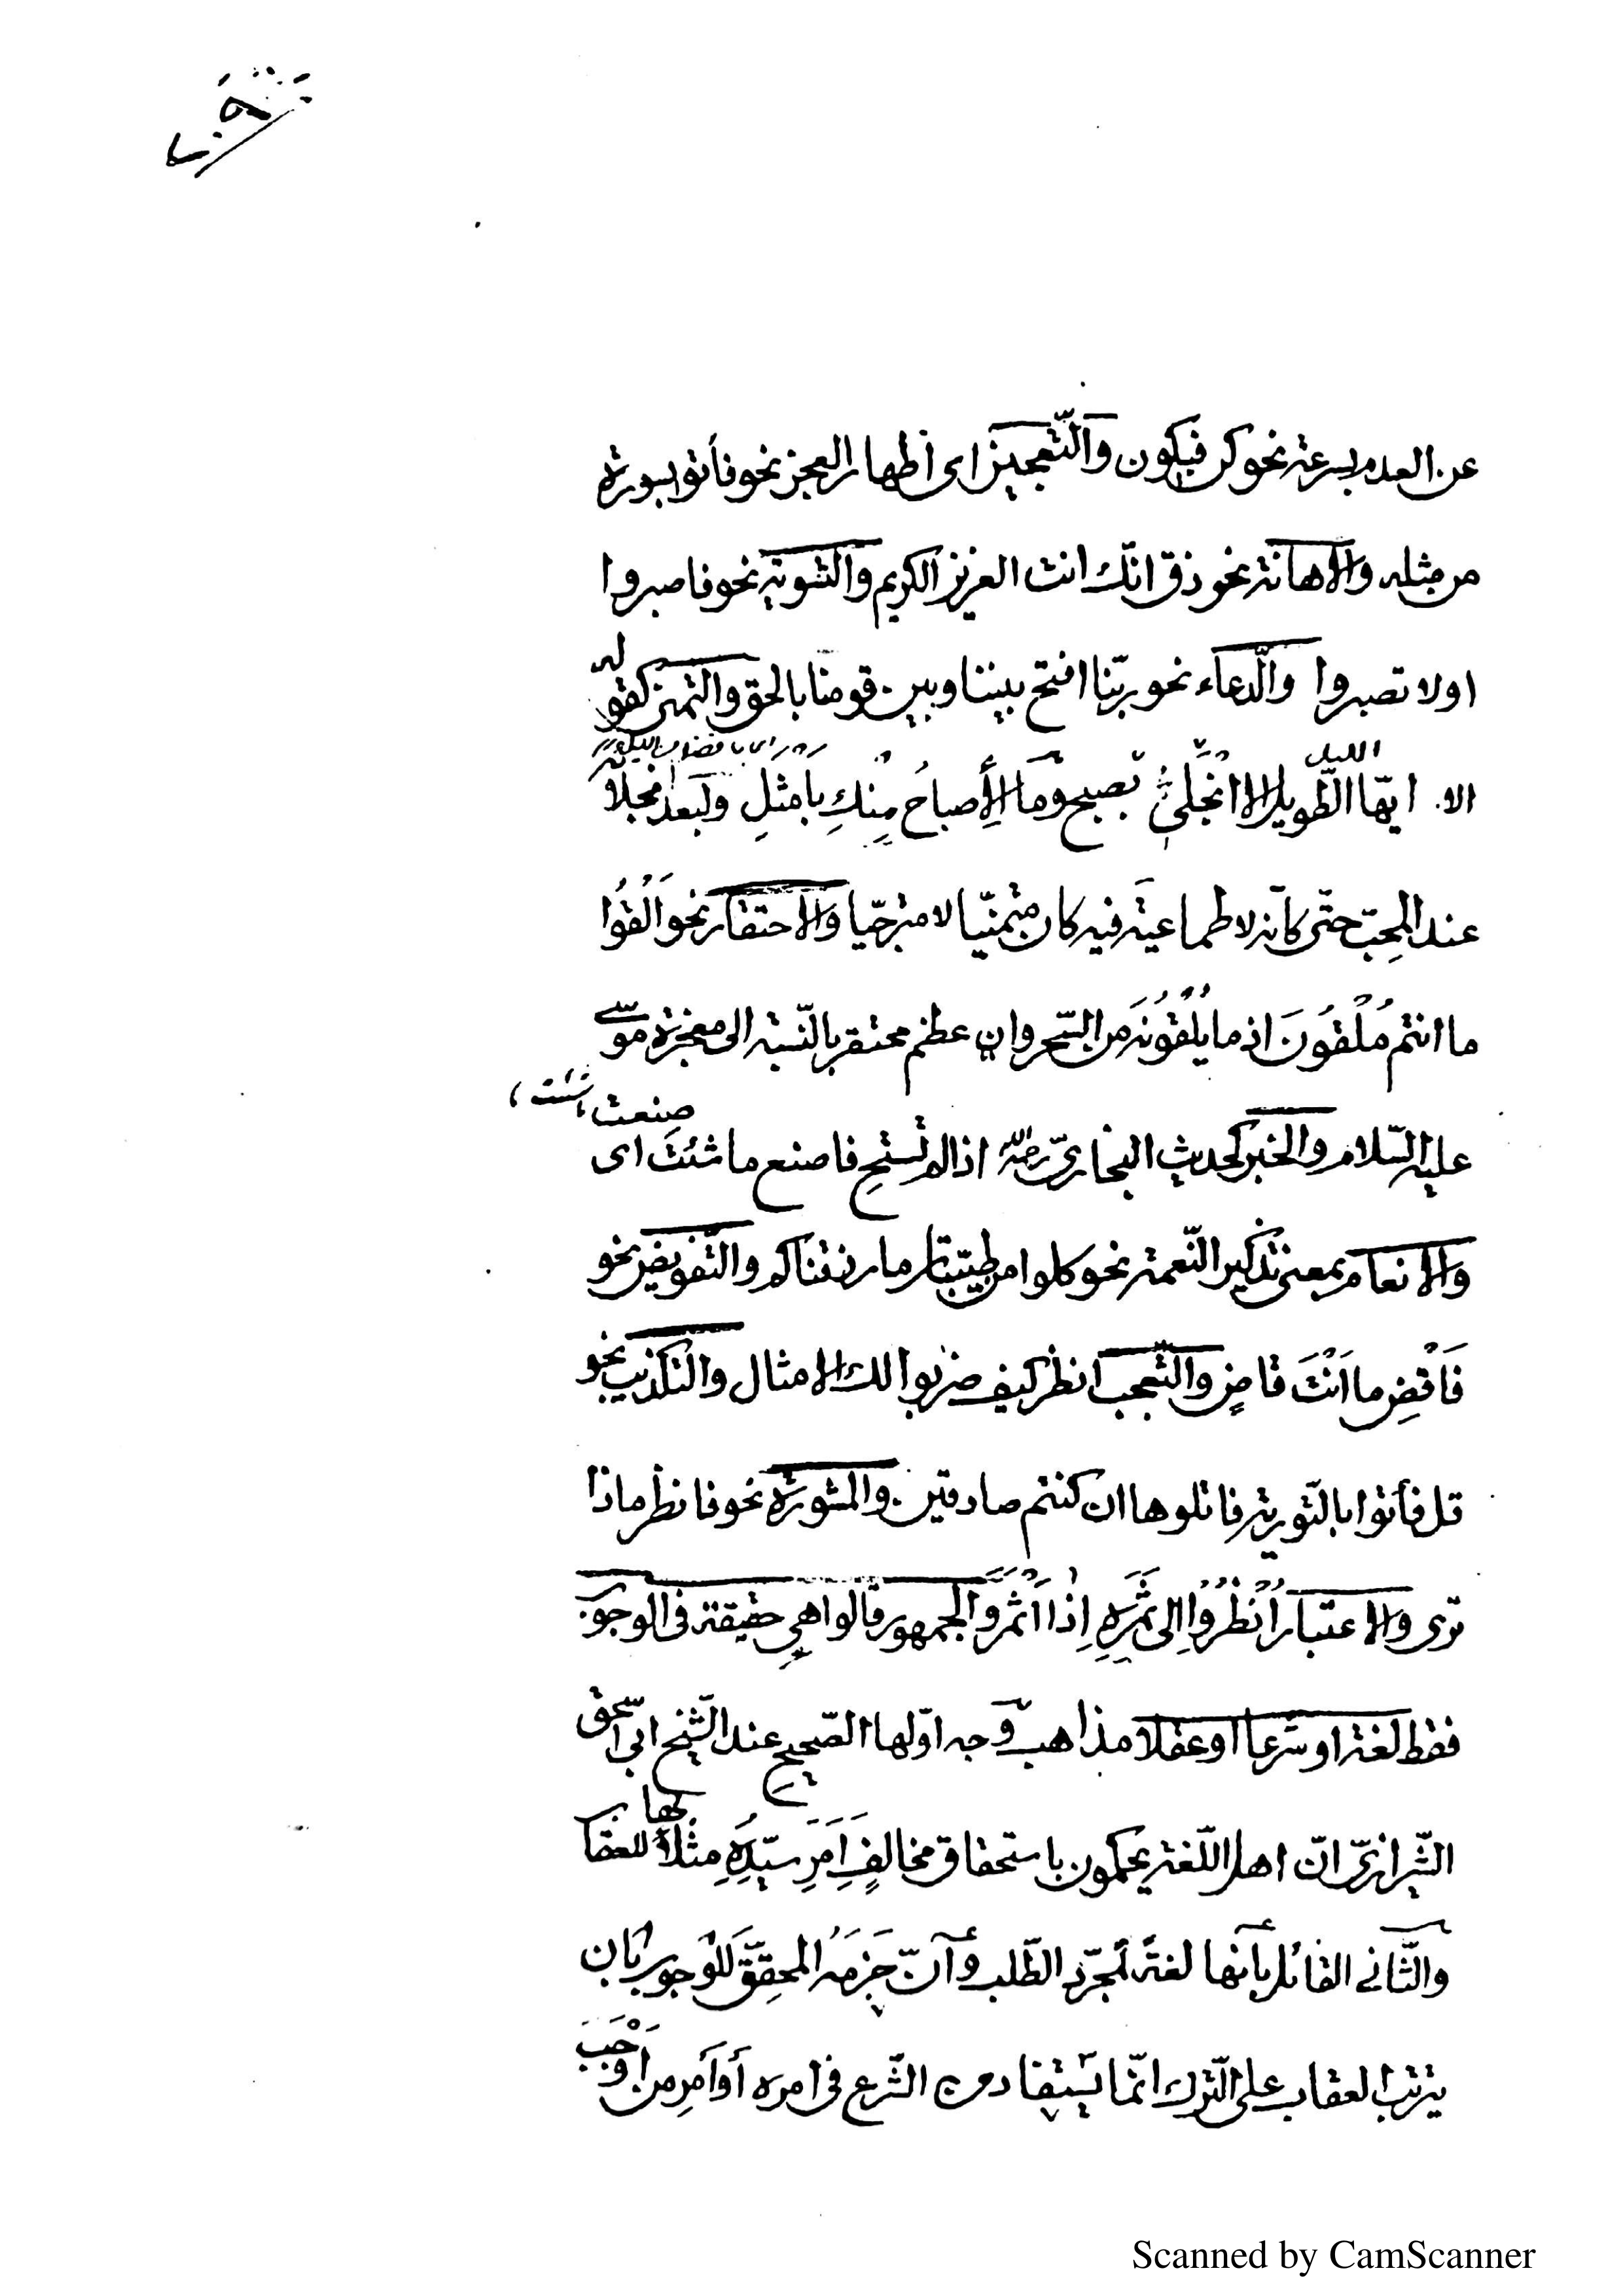 عن العدم بسرعة نحو كن فيكون والتّعجيز اى اظهار العجز نحو فأتوا بسورة
من مثله والاهانة نحو ذق انّك انت العزيز الكريم والتسوية نحو فاصبروا
اولا تصبروا والدّعاء نحو ربّنا افتح بيننا وبين قومنا بالحق والتمنى كقوله
الليل
الا ايّها الطّويل الا انْجَلىْ بصبح وما الأِصباحُ مِنْكِ بِاَمْثَلِ ولبعد انجلائه
عند المحِبّ حتّى كأنه لا طماعية فيه كان متمنّيا لا مترجّيا والاحتقار نحو اَلْقُوا
ما انتم مُلْقُونَ اذ ما يُلْقُونَه من السّحر وان عظم محتقر بالنّسبة الى معجزة موسى
صنعت
عليه السّلام والخبر كحديث البخارىّ رحمه الله اذا لم تستحِ فاصنع ما شئتَ اى
والانعام بمعنى تذكير النّعمة نحو كلوا من طيّبات ما رزقناكم والتّفويض نحو
فَاقْضِ ما اَنْتَ قاضٍ والتّعجب انظر كيف ضربوا لك الامثال والتكذيب نحو
قل فأتوا بالتّورية فاتلوها ان كنتم صادقين والمشورة نحو فانظر ماذا
ترى والاعتبار اُنْظُرُوا اِلى ثَمَرِهِ اِذا اَثْمَرَ والجمهور قالوا هى حقيقة فى الوجوب
فقط لغة او شرعا او عقلا مذاهب وجه اوّلها الصّحيح عند الشّيخ ابى اسحق
الشّيرازىّ انّ اهل اللّغة يحكمون باستحقاق مخالفِ اَمْرِ سيّدِهِ مثلا بها للعقاب
والثّانى القائل بأنها لغةً لمجرّد الطّلب وأنّ جَزْمَهُ المحقِّقَ للوجوب بان
يترتب العقاب على التّرك انّما يستفاد من الشّرع فى امره أو أمرِ من اَوْجَبَ
Scanned by CamScanner